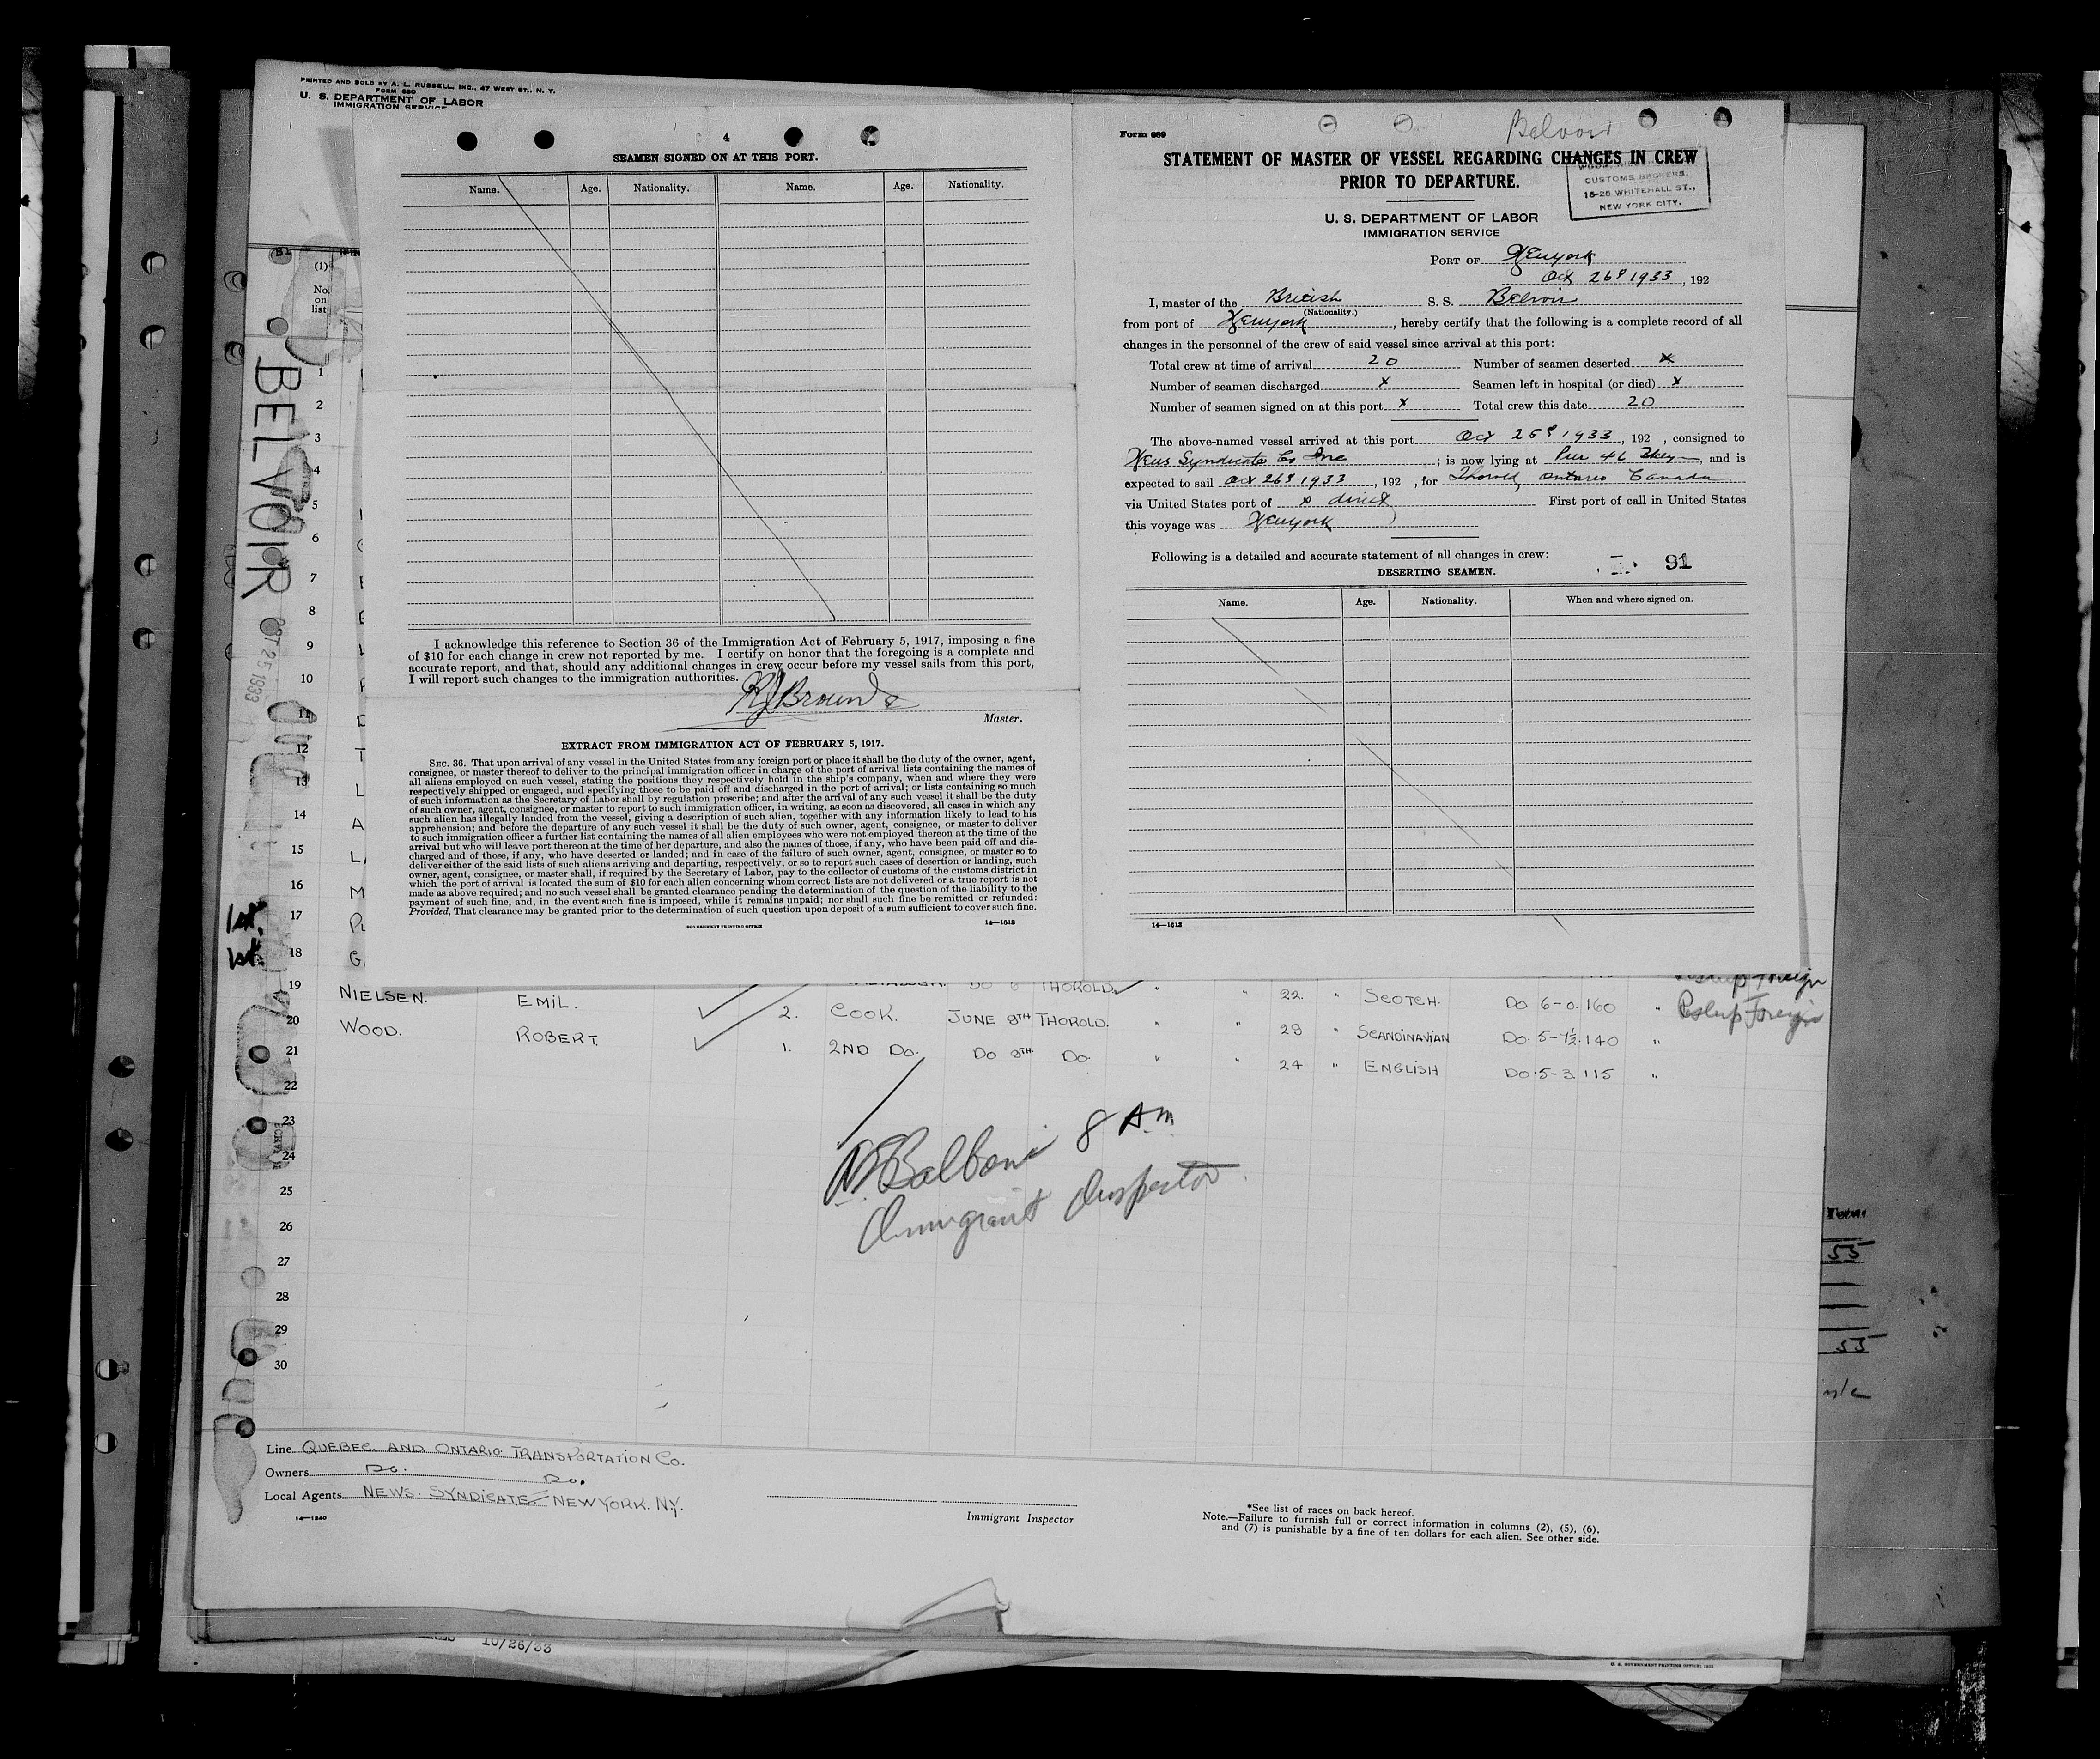 PRINTED AND SOLD BY A. L. RUSSELL, INC., 47 WEST ST., N. Y.
FORM 680
U. S. DEPARTMENT OF LABOR
IMMIGRATION SERVICE
4
SEAMEN SIGNED ON AT THIS PORT.
Name. Age. Nationality. Name. Age. Nationality.
I acknowledge this reference to Section 36 of the Immigration Act of February 5, 1917, imposing a fine
of $10 for each change in crew not reported by me. I certify on honor that the foregoing is a complete and
accurate report, and that, should any additional changes in crew occur before my vessel sails from this port,
I will report such changes to the immigration authorities.
Master.
EXTRACT FROM IMMIGRATION ACT OF FEBRUARY 5, 1917.
SEC. 36. That upon arrival of any vessel in the United States from any foreign port or place it shall be the duty of the owner, agent,
consignee, or master thereof to deliver to the principal immigration officer in charge of the port of arrival lists containing the names of
all aliens employed on such vessel, stating the positions they respectively hold in the ship's company, when and where they were
respectively shipped or engaged, and specifying those to be paid off and discharged in the port of arrival; or lists containing so much
of such information as the Secretary of Labor shall by regulation prescribe; and after the arrival of any such vessel it shall be the duty
of such owner, agent, consignee, or master to report to such immigration officer, in writing, as soon as discovered, all cases in which any
such alien has illegally landed from the vessel, giving a description of such alien, together with any information likely to lead to his
apprehension; and before the departure of any such vessel it shall be the duty of such owner, agent, consignee, or master to deliver
to such immigration officer a further list containing the names of all alien employees who were not employed thereon at the time of the
arrival but who will leave port thereon at the time of her departure, and also the names of those, if any, who have been paid off and dis-
charged and of those, if any, who have deserted or landed; and in case of the failure of such owner, agent, consignee, or master so to
deliver either of the said lists of such aliens arriving and departing, respectively, or so to report such cases of desertion or landing, such
owner, agent, consignee, or master shall, if required by the Secretary of Labor, pay to the collector of customs of the customs district in
which the port of arrival is located the sum of $10 for each alien concerning whom correct lists are not delivered or a true report is not
made as above required; and no such vessel shall be granted clearance pending the determination of the question of the liability to the
payment of such fine, and, in the event such fine is imposed, while it remains unpaid; nor shall such fine be remitted or refunded:
Provided, That clearance may be granted prior to the determination of such question upon deposit of a sum sufficient to cover such fine.
GOVERNMENT PRINTING OFFICE 14—1613
Form 689
Belvoir
STATEMENT OF MASTER OF VESSEL REGARDING CHANGES IN CREW
PRIOR TO DEPARTURE.
CUSTOMS BROKERS,
15-20 WHITEHALL ST.,
NEW YORK CITY.
U. S. DEPARTMENT OF LABOR
IMMIGRATION SERVICE
PORT OF Newyork
Oct 26th 1933, 192
I, master of the British S. S. Belvoir
(Nationality.)
from port of Newyork, hereby certify that the following is a complete record of all
changes in the personnel of the crew of said vessel since arrival at this port:
Total crew at time of arrival 20 Number of seamen deserted x
Number of seamen discharged x Seamen left in hospital (or died) x
Number of seamen signed on at this port x Total crew this date 20
The above-named vessel arrived at this port Oct 25th 1933, 192 , consigned to
News Syndicate Co Inc ; is now lying at Pier 46, and is
expected to sail Oct 26th 1933, 192 , for Thorold, Ontario Canada
via United States port of x direct First port of call in United States
this voyage was Newyork
Following is a detailed and accurate statement of all changes in crew:
91
DESERTING SEAMEN.
Name. Age. Nationality. When and where signed on.
14—1613
BELVOIR
OCT 25 1933
(1)
No.
on
list
1
2
3
4
5
6
7
8
9
10
11
12 T
13 L
14 A
15 L
16 M
17 R
18 G
1st.
1st.
19 NIELSEN. EMIL. 2. COOK. JUNE 8TH THOROLD. " " 22. " SCOTCH. DO 6-0. 160 "
20 WOOD. ROBERT. 1. 2ND DO. DO 8TH DO. " " 29 " SCANDINAVIAN DO. 5-7½. 140 "
21 24 " ENGLISH DO. 5-3. 115 "
DO 6 THOROLD
Foreign
Foreign
22
23
24
25
26
27
28
29
30
8 AM
Immigrant Inspector
Line QUEBEC AND ONTARIO TRANSPORTATION CO.
Owners DO. DO.
Local Agents NEWS SYNDICATE NEW YORK. N.Y.
14—1240
Immigrant Inspector
*See list of races on back hereof.
Note.—Failure to furnish full or correct information in columns (2), (5), (6),
and (7) is punishable by a fine of ten dollars for each alien. See other side.
55
55
10/26/33